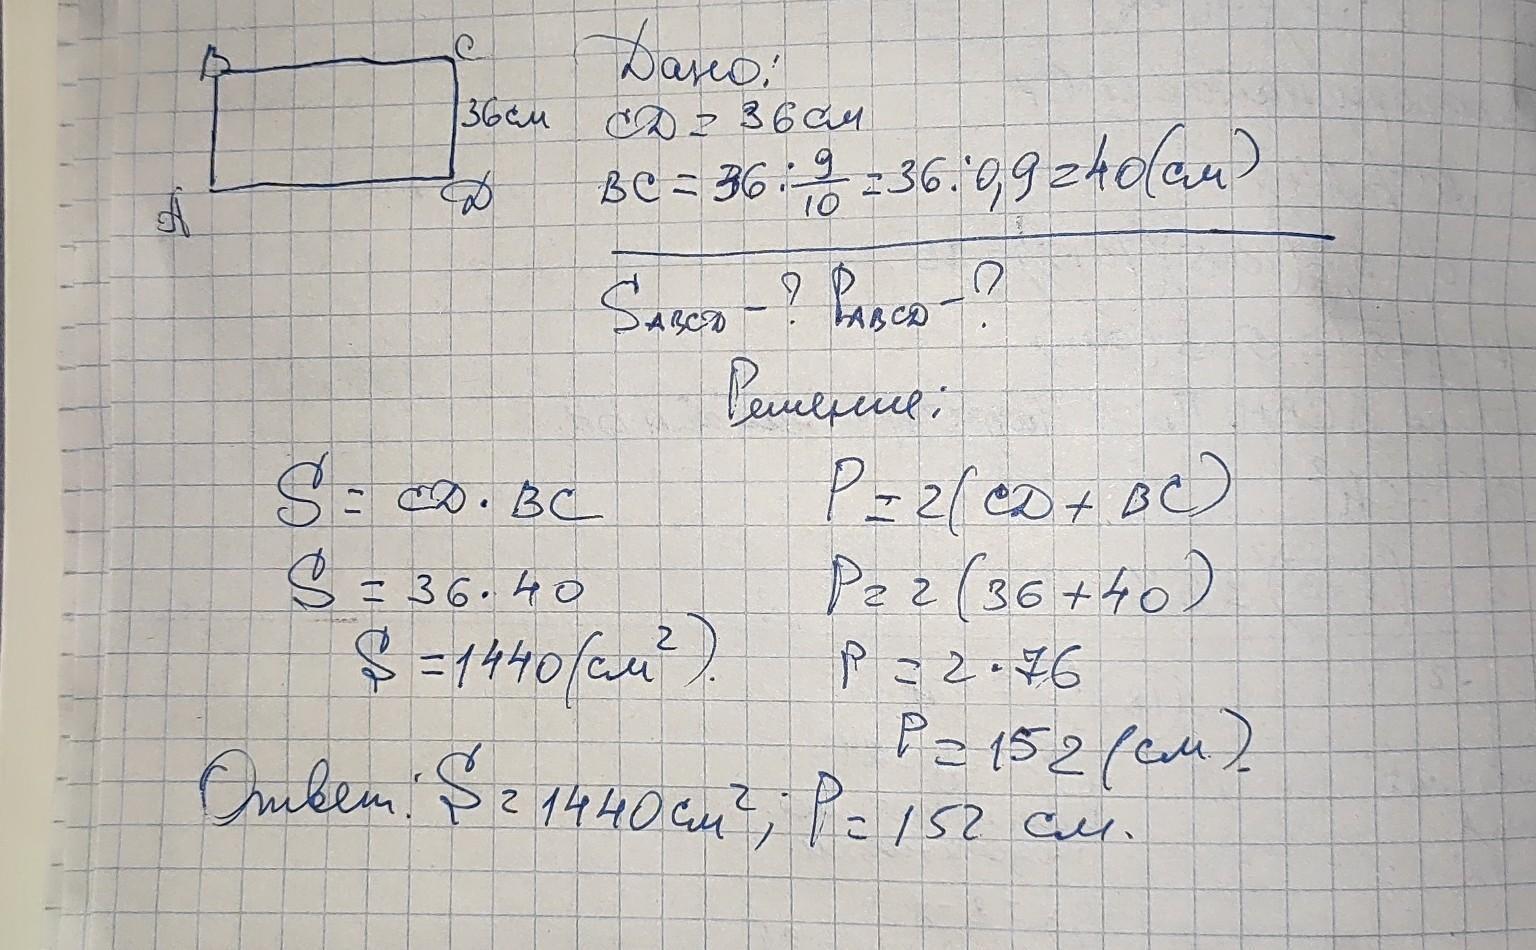 B C
36см
A D
Дано:
CD = 36 см
BC = 36 : 9/10 = 36 : 0,9 = 40 (см)
SABCD - ? PABCD - ?
Решение:
S = CD · BC
S = 36 · 40
S = 1440 (см²).
P = 2(CD + BC)
P = 2 (36 + 40)
P = 2 · 76
P = 152 (см).
Ответ: S = 1440 см²; P = 152 см.